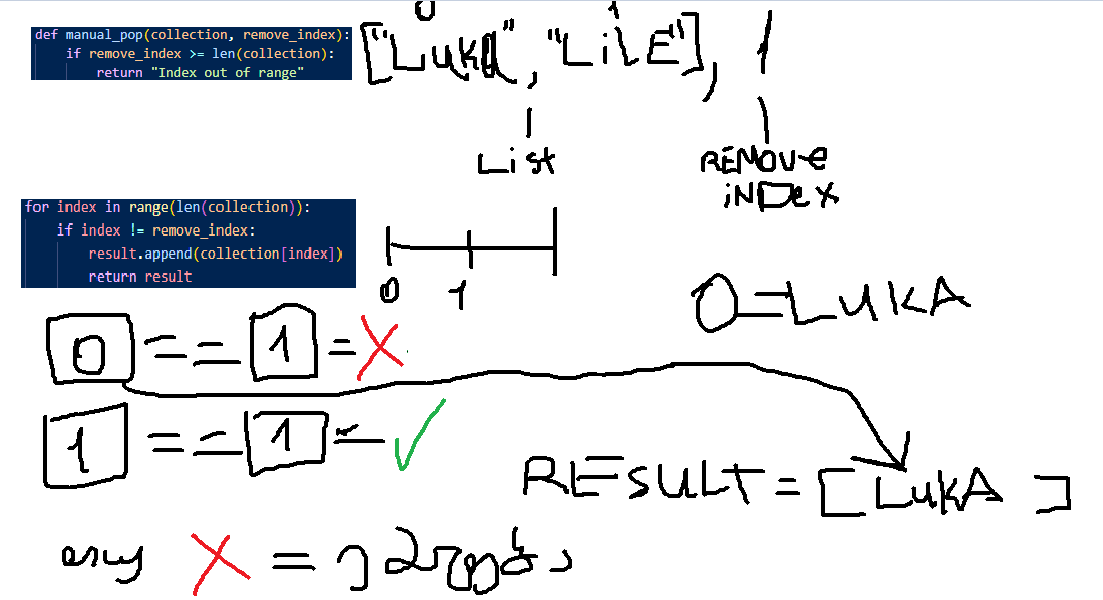 def manual_pop(collection, remove_index):
if remove_index >= len(collection):
return "Index out of range"
0 1
["Luka", "LiLE"], 1
List
REMOVE
iNDex
for index in range(len(collection)):
if index != remove_index:
result.append(collection[index])
return result
0 1
0=LUKA
0 == 1 = X
1 == 1 = ✓
RESULT = [LUKA]
X =